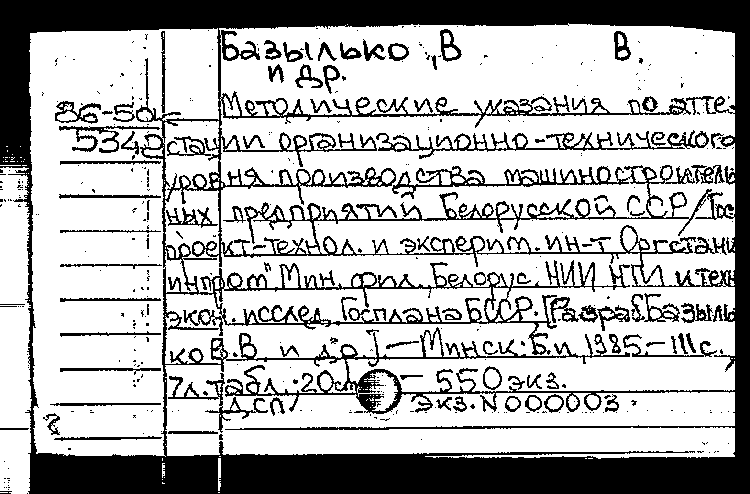 Базылько В. В.
и др.
86-50
5342
Методические указания по атте-
стации организационно-технического
уровня производства машиностроитель
ных предприятий Белорусской ССР / Гос
проект.-технол. и эксперим. ин-т "Оргстани
инпром" Мин. фил., Белорус. НИИ НТИ и техн
экон. исслед. Госплана БССР; [Разраб. Базыль
ко В.В. и др.]. — Минск: Б.и., 1985. — 111 с.,
7 л. табл.; 20 см — 550 экз.
ДСП Экз. N 000003.